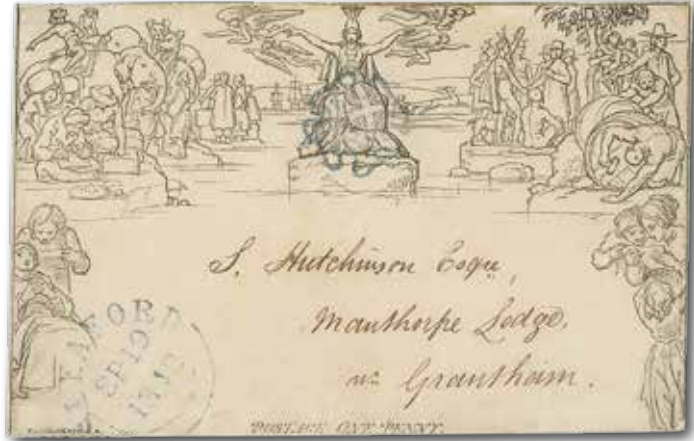 S. Hutchinson Esqre,
Manthorpe Lodge,
nr Grantham.
SLEAFORD
SP 10
POSTAGE ONE PENNY.